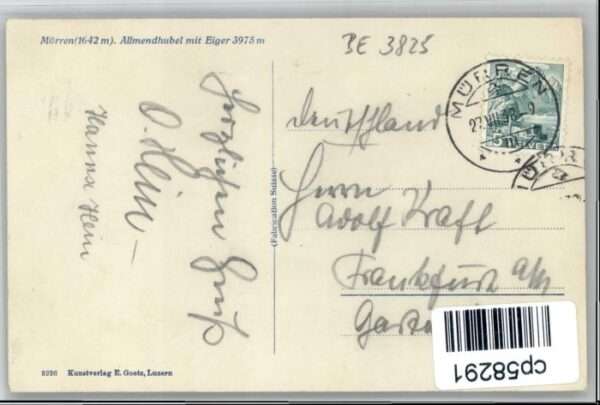 Mürren (1642 m). Allmendhubel mit Eiger 3975 m
BE 3825
Herzlichen Gruß
O. Hein –
Hanna Hein
(Fabrication Suisse)
MÜRREN
Deutschland
Herrn
Adolf Kraft
Frankfurt a/M
8226 Kunstverlag E. Goetz, Luzern
cp58291